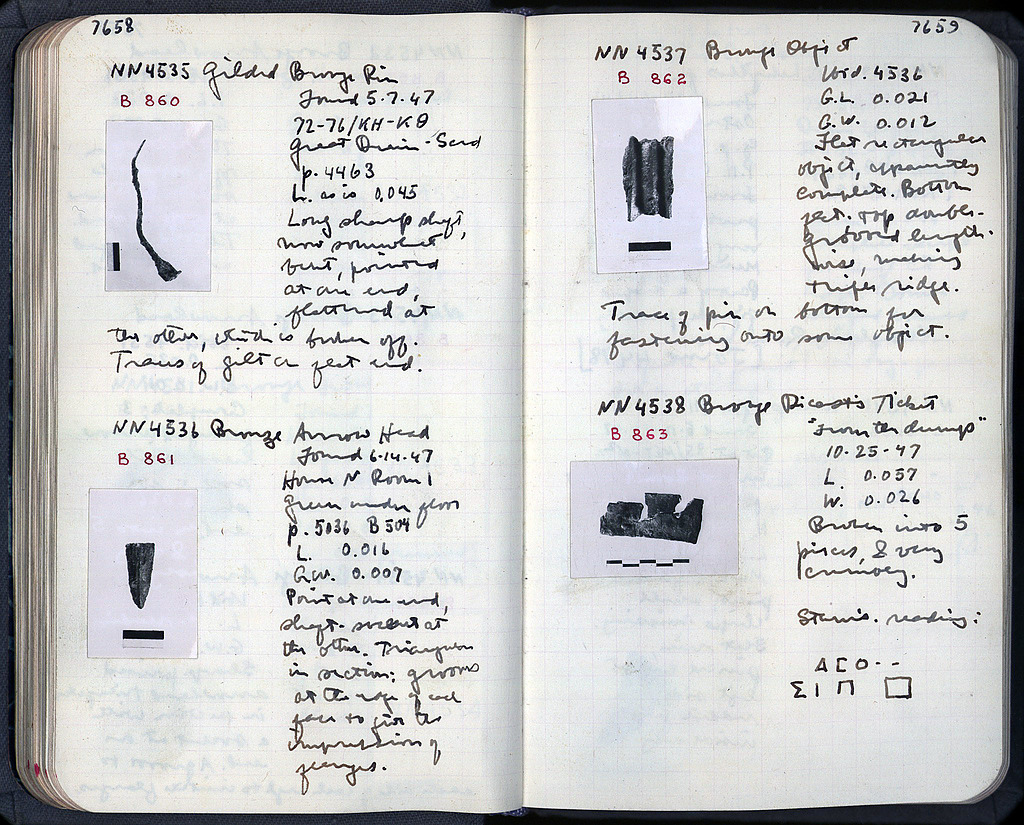 7658
NN4535 Gilded Bronze Pin
B 860
Found 5.7.47
72-76/KH-KΘ
Great Drain - Sand
p. 4463
L. as is 0.045
Long sharp shaft,
now somewhat
bent, pointed
at one end,
flattened at
the other, which is broken off.
Traces of gilt on flat end.
NN4536 Bronze Arrow Head
B 861
Found 6.14.47
House N Room 1
Green under floor
p. 5036 B 504
L. 0.016
G.W. 0.007
Point at one end,
shaft-socket at
the other. Triangular
in section; grooves
at the edge of each
face to give the
impression of
flanges.
7659
NN4537 Bronze Object
B 862
Ibid. 4536
G.L. 0.021
G.W. 0.012
Flat rectangular
object, apparently
complete. Bottom
flat. Top double-
grooved length-
wise, making
triple ridge.
Trace of pin on bottom for
fastening onto some object.
NN4538 Bronze Dicast's Ticket
B 863
"From the dumps"
10-25-47
L. 0.057
W. 0.026
Broken into 5
pieces, & very
crumbly.
reading:
Δ Ε Ο - -
Σ Ι Π □